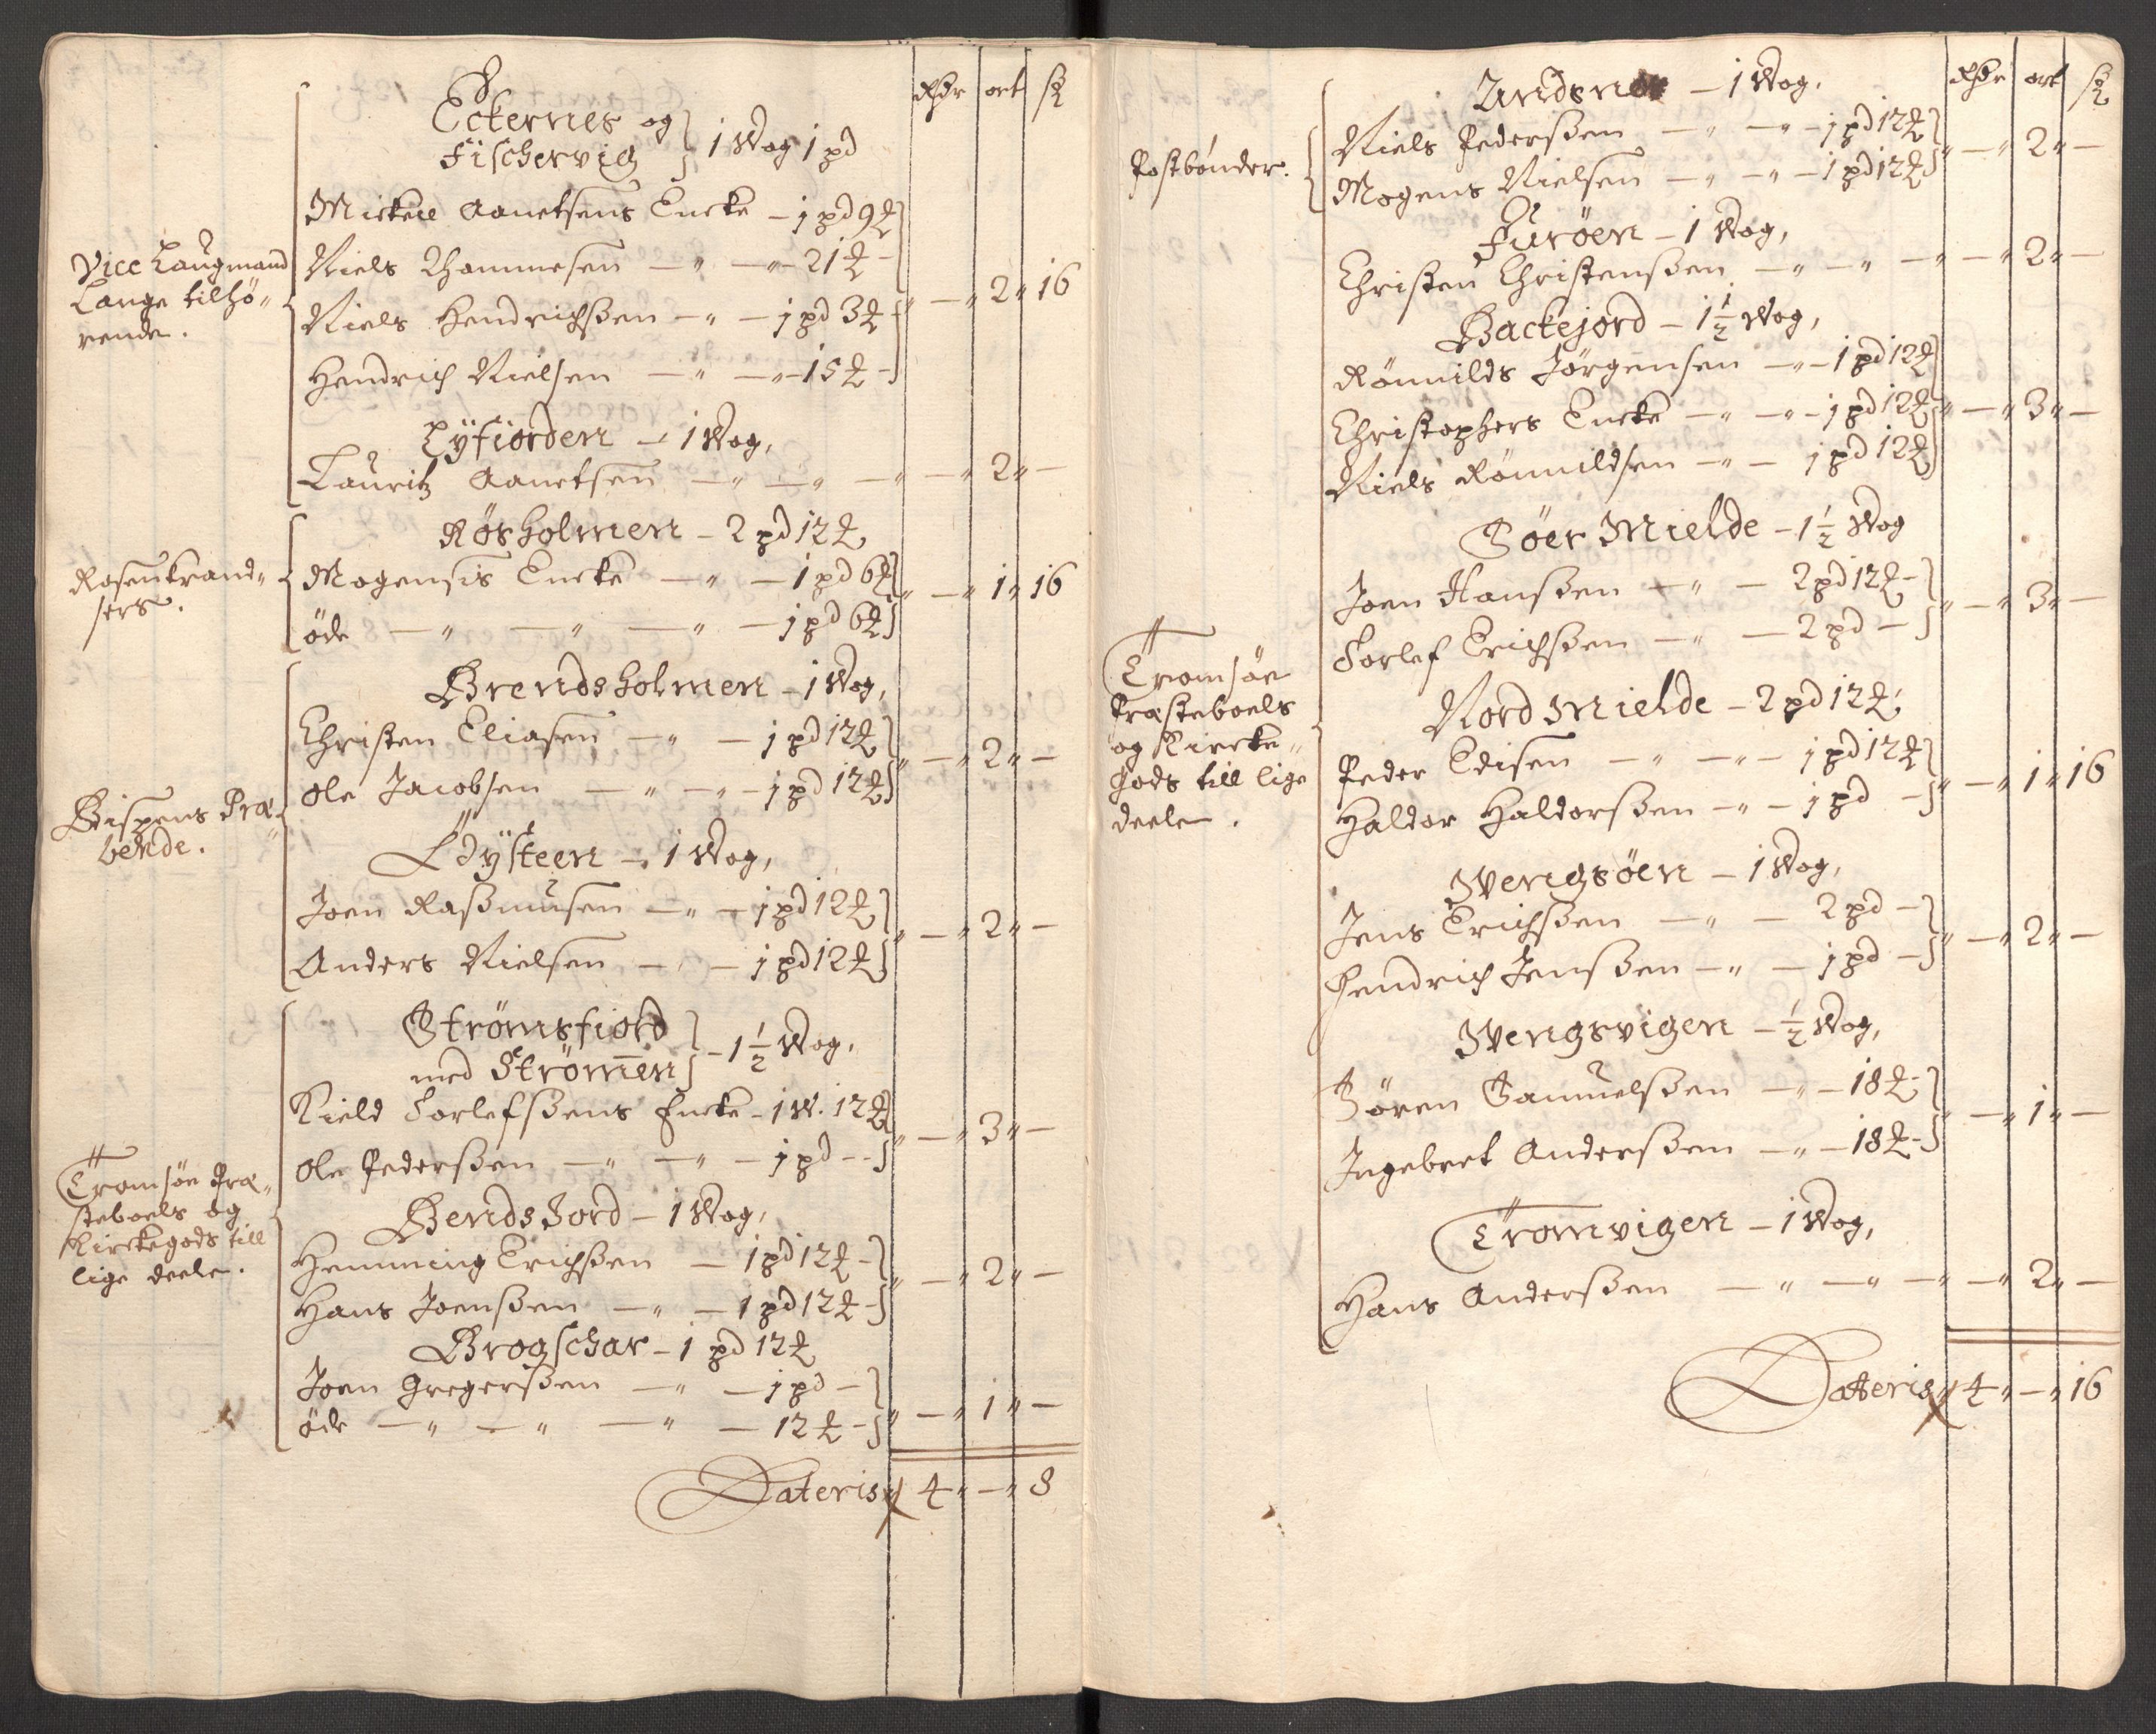 Rdr ort ß
Eckernes og
Fischervig } 1 Wog 1 pd
Mickell Aanetsens Encke – 1 pd 9 ℔
Vice Laugmand
Lange tilhö-
rende.
Niels Thommesen – " – " – 21 ℔ –
Niels Hendrichßen – " – 1 pd 3 ℔ " – " 2 " 16
Hendrich Nielsen – " – " – 15 ℔ –
Lyfiorden – 1 Wog,
Lauritz Aanetsen – " – " – " – " 2 " –
Rösholmen – 2 pd 12 ℔,
Rosenkrand-
sers.
Mogensis Encke – " – 1 pd 6 ℔ " – " 1 " 16
öde – " – " – " – 1 pd 6 ℔
Brendsholmen – 1 Wog,
Christen Eliasen – " – 1 pd 12 ℔ " – " 2 " –
Ole Jacobsen – " – " – 1 pd 12 ℔
Bispens Præ-
bende.
Ldÿsteen – 1 Wog,
Joen Raßmusen – " – 1 pd 12 ℔ " – " 2 " –
Anders Nielsen – " – 1 pd 12 ℔
Strömsfiord
med Strömen } – 1 1/2 Wog.
Kield Torlefßens Encke – 1 W. 12 ℔ " – " 3 " –
Ole Pederßen – " – " – 1 pd –
Tromsöe Præ-
steboels og
Kirckegods till
lige deele.
Bends Jord – 1 Wog,
Hemming Erichßen – 1 pd 12 ℔ – " – " 2 " –
Hans Joenßen – " – 1 pd 12 ℔ –
Brogschar – 1 pd 12 ℔
Joen Gregerßen – " – 1 pd – " – " 1 " –
öde – " – " – " – 12 ℔ –
Lateris 4 " – " 8
Rdr ort ß
Andsnes – 1 Wog.
Postbönder.
Niels Pederßen – " – " – 1 pd 12 ℔ " – " 2 " –
Mogens Nielsen – " – " – 1 pd 12 ℔
Furöen – 1 Wog,
Christen Christenßen – " – " – " – " 2 " –
Backejord – 1 1/2 Wog,
Rönnilds Jörgensen – " – 1 pd 12 ℔
Christophers Encke – " – " – 1 pd 12 ℔ " – " 3 " –
Niels Rönnildsen – " – 1 pd 12 ℔
Söer Mielde – 1 1/2 Wog
Joen Hanßen – " – 2 pd 12 ℔ – " – " 3 " –
Torlef Erichßen – " – 2 pd –
Tromsöe
Præsteboels
og Kircke-
Gods till lige
deele.
Nord Mielde – 2 pd 12 ℔,
Peder Edisen – " – " – 1 pd 12 ℔ " – " 1 " 16
Haldor Haldorßen – " – 1 pd –
Wengsöen – 1 Wog,
Jens Erichßen – " – 2 pd – " – " 2 " –
Hendrich Jenßen – " – 1 pd –
Wengsvigen – 1/2 Wog,
Sören Samuelßen – " – 18 ℔ – " – " 1 " –
Ingebret Anderßen – " – 18 ℔ –
Tromvigen – 1 Wog,
Hans Anderßen – " – " – " – " 2 " –
Lateris 4 " – " 16